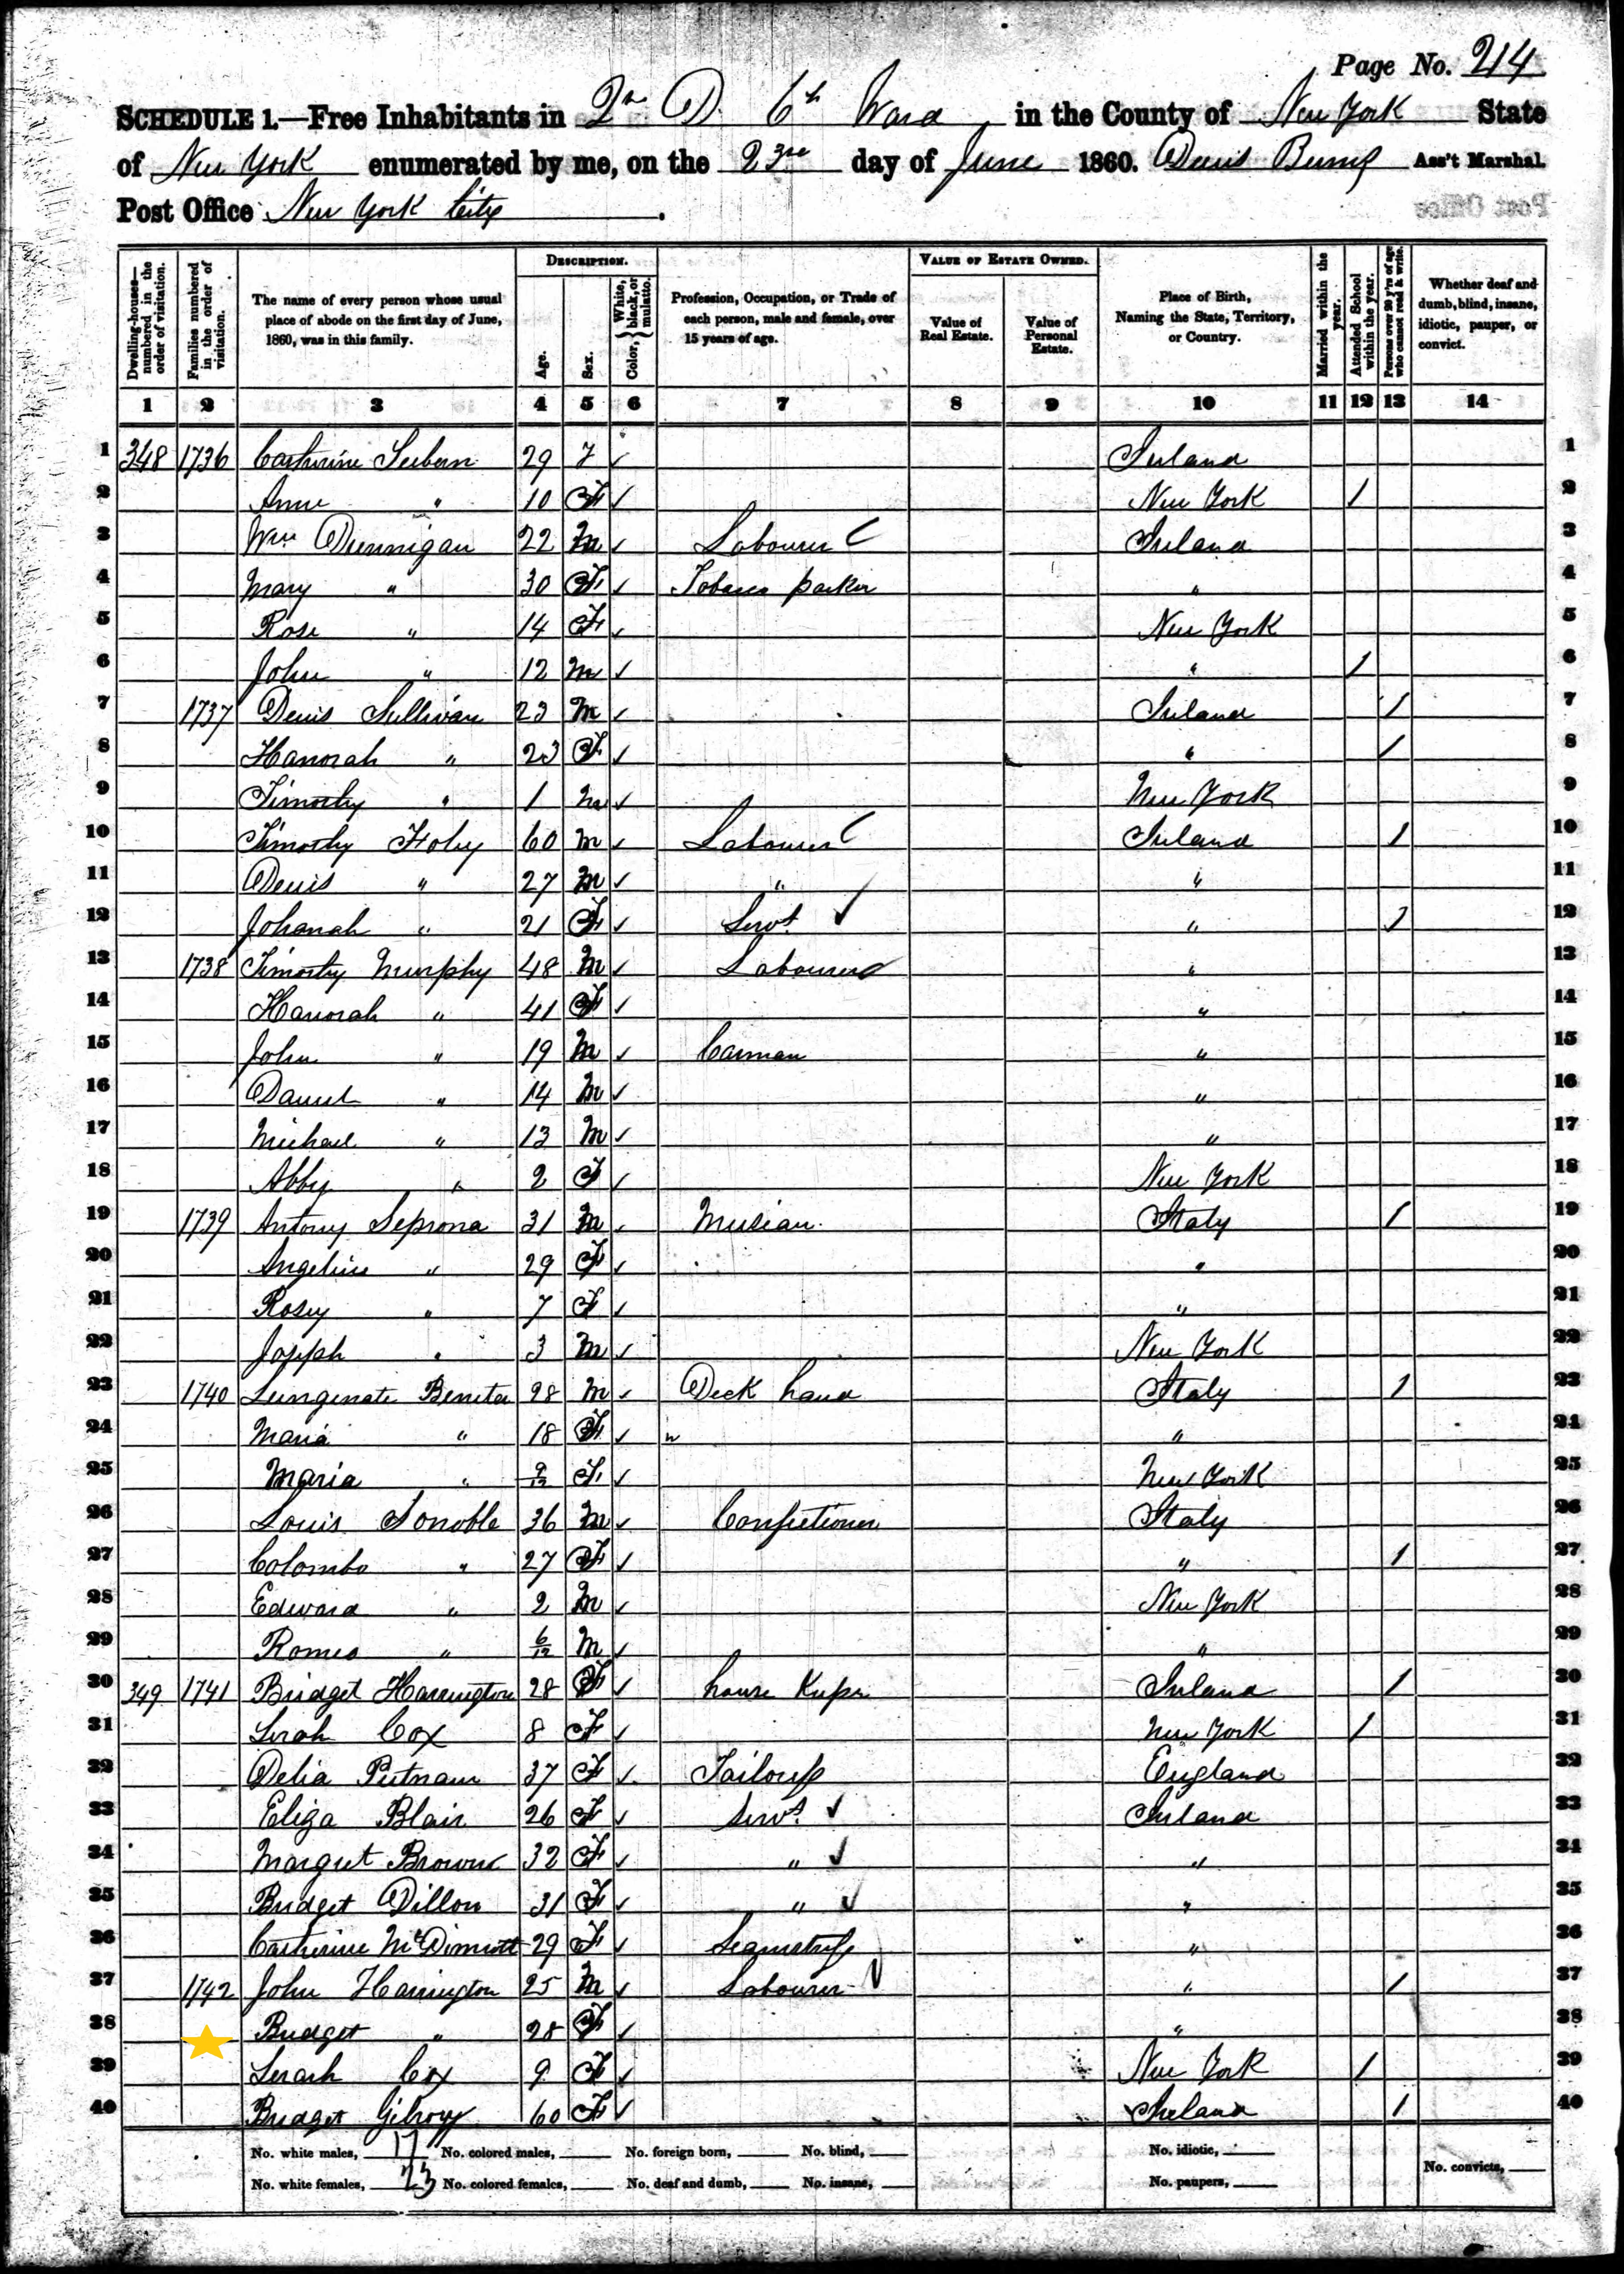 Page No. 214
SCHEDULE 1.—Free Inhabitants in 2n D. 6th Ward in the County of New York State
of New York enumerated by me, on the 23rd day of June 1860. Denis Burns Ass't Marshal.
Post Office New York City .
Post Office
Dwelling-houses—numbered in the order of visitation.
Families numbered in the order of visitation.
The name of every person whose usual place of abode on the first day of June, 1860, was in this family.
DESCRIPTION.
Age.
Sex.
Color, { White, black, or mulatto.
Profession, Occupation, or Trade of each person, male and female, over 15 years of age.
VALUE OF ESTATE OWNED.
Value of Real Estate.
Value of Personal Estate.
Place of Birth, Naming the State, Territory, or Country.
Married within the year.
Attended School within the year.
Persons over 20 y'rs of age who cannot read & write.
Whether deaf and dumb, blind, insane, idiotic, pauper, or convict.
1 2 3 4 5 6 7 8 9 10 11 12 13 14
1 348 1736 Catherine 29 F ✓ Ireland 1
2 Anne " 10 F ✓ New York / 2
3 Wm Dunnigan 22 M ✓ Labourer Ireland 3
4 Mary " 30 F ✓ Tobacco packer " 4
5 Rose " 14 F ✓ New York 5
6 John " 12 M ✓ " / 6
7 1737 Denis Sullivan 23 M ✓ Ireland / 7
8 Hanorah " 23 F ✓ " / 8
9 Timothy " 1 M ✓ New York 9
10 Timothy Foley 60 M ✓ Labourer Ireland / 10
11 Denis " 27 M ✓ " " 11
12 Johanah " 21 F ✓ Servt ✓ " / 12
13 1738 Timothy Murphy 48 M ✓ Labourer " 13
14 Hanorah " 41 F ✓ " 14
15 John " 19 M ✓ Carman " 15
16 Daniel " 14 M ✓ " 16
17 Michael " 13 M ✓ " 17
18 Abby " 2 F ✓ New York 18
19 1739 Antony Seprona 31 M ✓ Musian Italy / 19
20 Angeline " 29 F ✓ " 20
21 Rosey " 7 F ✓ " 21
22 Joseph " 3 M ✓ New York 22
23 1740 28 M ✓ Deck hand Italy / 23
24 Maria " 18 F ✓ " " 24
25 Maria " 9/12 F ✓ New York 25
26 Louis Sonoble 36 M ✓ Confectioner Italy 26
27 Colombo " 27 F ✓ " / 27
28 Edward " 2 M ✓ New York 28
29 Romeo " 6/12 M ✓ " 29
30 349 1741 Bridget Harrington 28 F ✓ house Keeper Ireland / 30
31 Serah Cox 8 F ✓ New York / 31
32 Delia Putnam 37 F ✓ Tailoress England 32
33 Eliza Blair 26 F ✓ Servt. ✓ Ireland 33
34 Margret Browne 32 F ✓ " ✓ " 34
35 Bridget Dillon 31 F ✓ " ✓ " 35
36 Catherine McDimott 29 F ✓ Seamstress " 36
37 1742 John Harrington 25 M ✓ Labourer ✓ " / 37
38 Bridget " 28 F ✓ " 38
39 Serah Cox 9 F ✓ New York / 39
40 Bridget Gilroy 60 F ✓ Ireland / 40
No. white males, 17 No. colored males, No. foreign born, No. blind, No. idiotic,
No. white females, 23 No. colored females, No. deaf and dumb, No. insane, No. paupers, No. convicts,